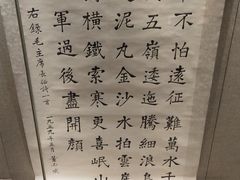 不怕遠征難萬水千
五嶺逶迤騰細浪烏
泥丸金沙水拍雲崖
橫鐵索寒更喜岷山
軍過後盡開顏
右錄毛主席長征詩一首